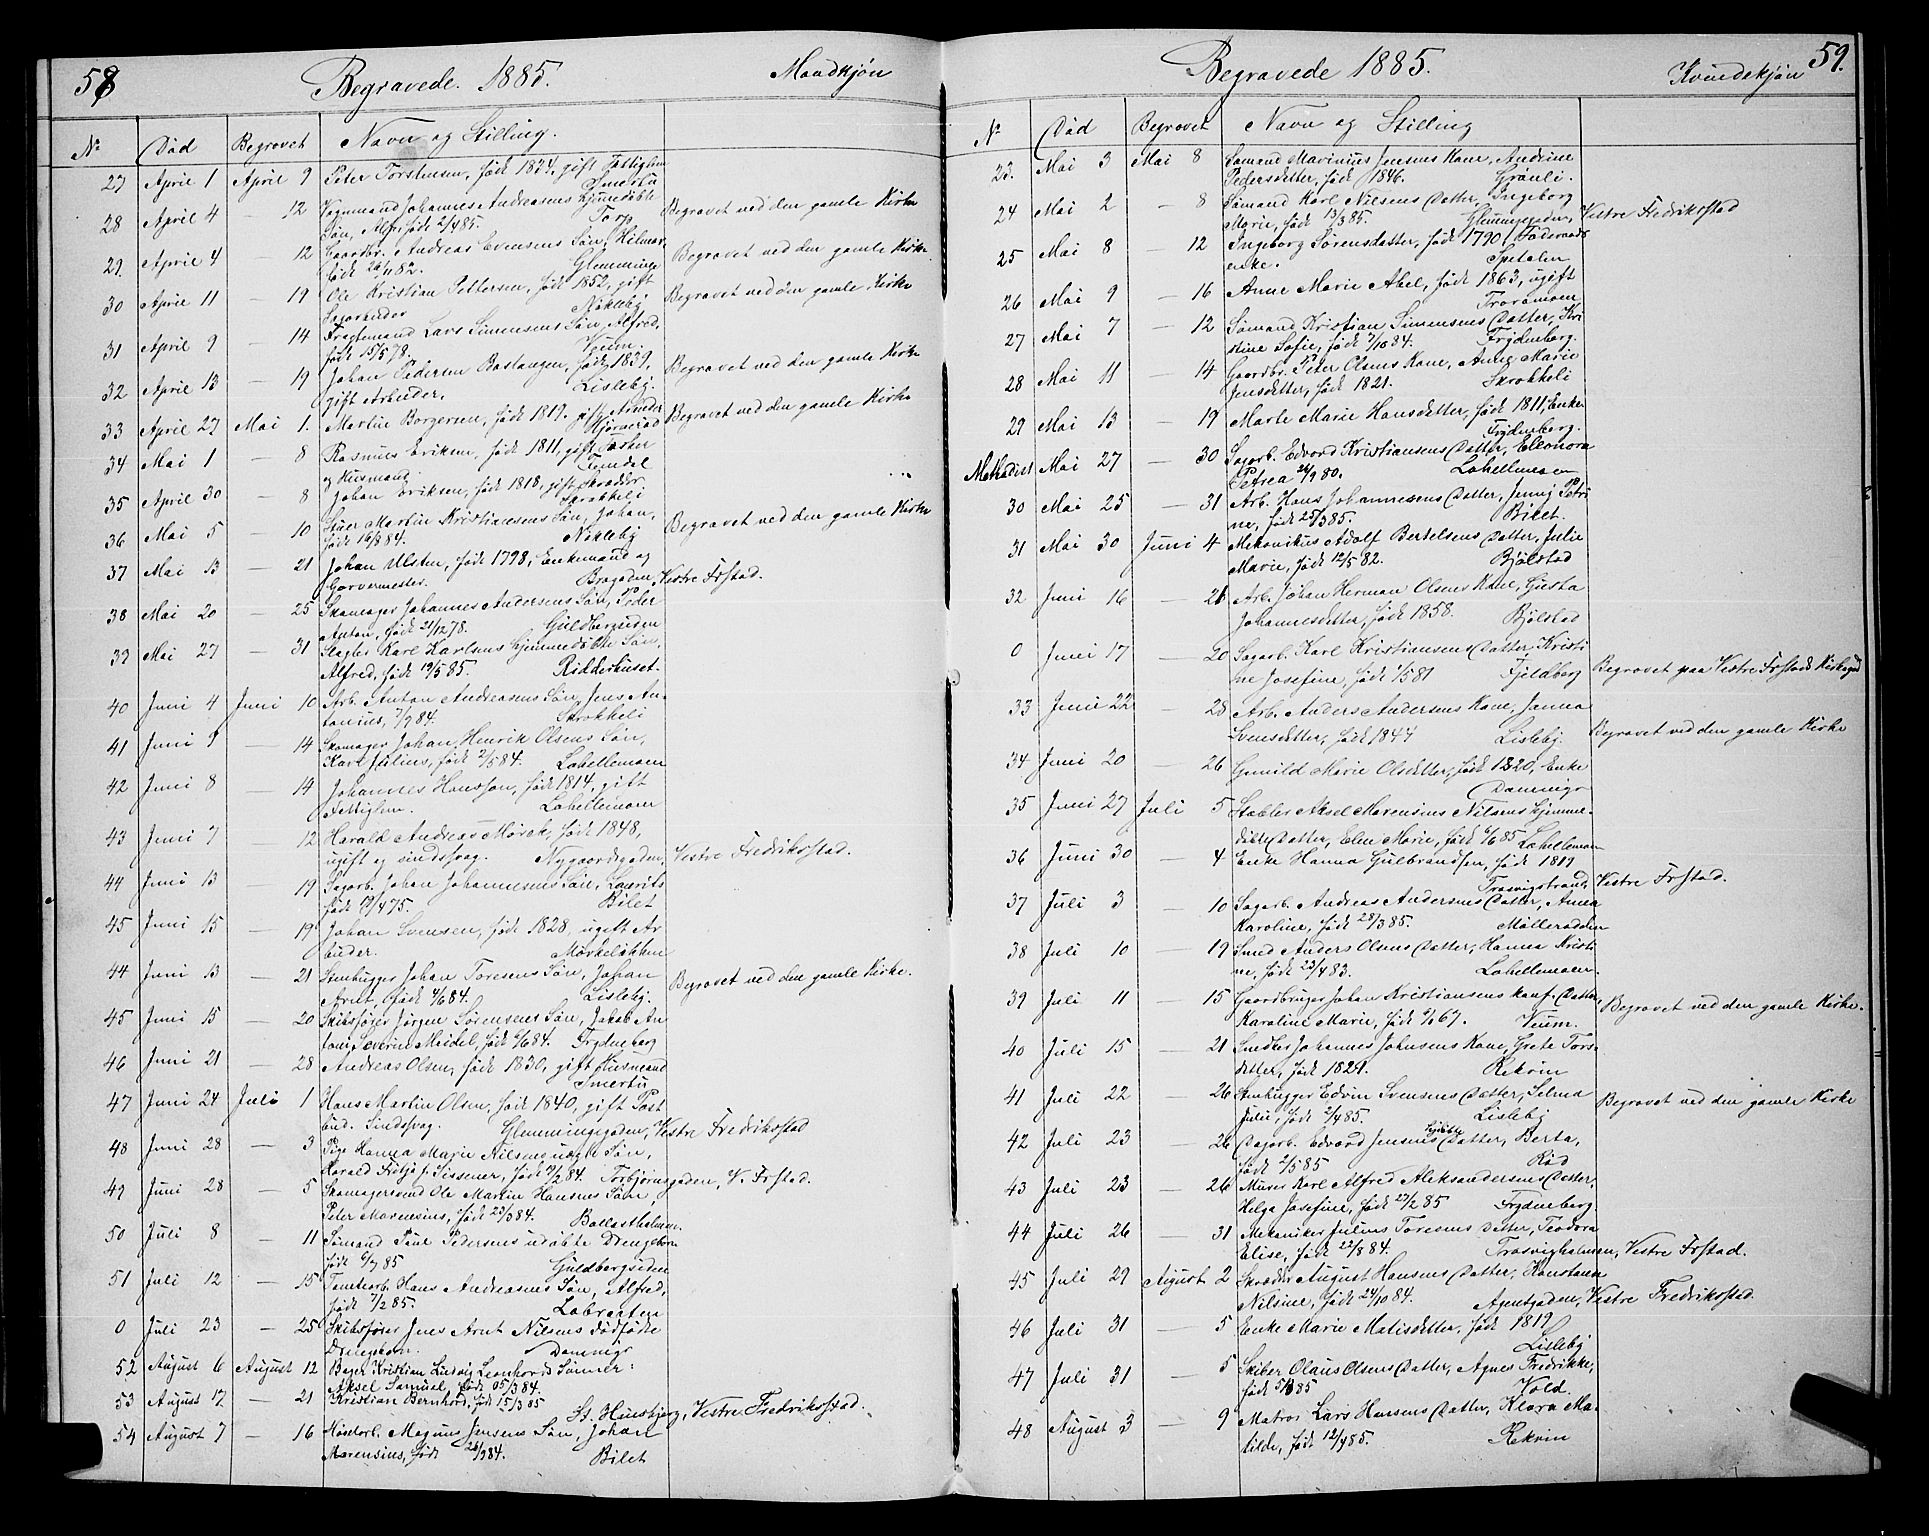 58
Begravede. 1885.
Mandkjøn
No Død Begravet Navn og Stilling.
27 April 1 April 9 Peter Torstensen, født 1824, gift Fattiglem
Smertu
28 April 4 — 12 Vognmand Johannes Andreasens hjemdøbte
Søn, Alf, født 2/485. Torp Begravet ved den gamle Kirke
29. April 4 12 Gaardbr. Andreas Evensens Søn, Hilmar,
født 26/1182. Glemminge Begravet ved den gamle Kirke.
30 April 11 — 19 Ole Kristian Pettersen, født 1852, gift
Sagarbeider Nikleby Begravet ved den gamle Kirke
31 April 9 — 14 Fragtemand Lars Simensens Søn, Alfred,
født 15/578. Veum.
32 April 13 — 19 Johan Pedersen Bastangen, født 1839,
gift Arbeider. Lisleby. Begravet ved den gamle Kirke
33 April 27 Mai 1. Martin Borgersen, født 1819, gift Arbeider
Hjørnerød Begravet ved den gamle Kirke
34 Mai 1 — 8 Rasmus Eriksen, født 1811, gift
og Husmand
35 April 30 — 8 Johan Eriksen, født 1818, gift Skrædder
Skrokkeli
36 Mai 5 — 10 Stuer Martin Kristiansens Søn, Johan,
født 16/884. Nikleby Begravet ved den gamle Kirke
37 Mai 13 — 21 Johan Ulsten, født 1798, Enkemand og
Garvermester. Brogaden, Vestre Frstad.
38 Mai 20 — 25 Skomager Johannes Andersens Søn, Peder
Anton, født 21/1278. Guldbergsiden
39 Mai 27 — 31 Slagter Karl Karlsens hjemmedøbte Søn,
Alfred, født 19/585. Ridderhuset.
40 Juni 4 Juni 10 Arb. Anton Andreasens Søn, Jens An-
tonius, 7/984. Skrokkeli
41 Juni 9 — 14 Skomager Johan Henrik Olsens Søn,
Karl Julius, født 2/584. Lahellemoen
42 Juni 8 — 14 Johannes Hansson, født 1814, gift
Fattiglem. Lahellemoen
43 Juni 7 12 Harald Andreas Mørck, født 1848,
ugift og sindssvag. Nygaardsgaden, Vestre Fredriksstad.
44 Juni 13 — 19 Sagarb. Johan Johannesens Søn, Laurits
født 19/475. Bilet
45 Juni 15 — 19 Johan Svensen, født 1828, ugift Ar
beider. Mørkeløkken
44 Juni 13 — 21 Stenhugger Johan Toresens Søn, Johan
Arnt, født 4/684. Lisleby. Begravet ved den gamle Kirke.
45 Juni 15 — 20 Skibsfører Jørgen Sørensens Søn, Jakob An
ton Severin Meidel, født 6/684. Frydenberg
46 Juni 21 — 28 Andreas Olsen, født 1830, gift Husmand
Smertu
47 Juni 24 Juli 1 Hans Martin Olsen, født 1840, gift Post
bud. Sindssvag. Glemmingegaden, Vestre Fredriksstad
48 Juni 28 — 3 Pige Hanna Marie Nilsens uægte Søn,
Harald Fritjof Sissener, født 9/284. Torbjørnsgaden, V. Frstad.
49 Juni 28 — 5 Skomagersvend Ole Martin Hansens Søn,
Peter Marensius, født 23/384. Ballastholmen.
50 Juli 8 — 11 Sømand Paul Pedersens udøbte Drengebarn
født 6/785 Guldbergsiden
51 Juli 12 — 15 Tomtearb. Hans Andreasens Søn, Alfred,
født 7/285. Labraaten
0 Juli 23 — 25 Skibsfører Jens Arnt Nilsens dødfødte
Drengebarn. Damnigs
52 August 6 August 12 Bager Kristian Ludvig Leonhards Sønner:
Aksel Samuel, født 05/384.
53 August 17 — 21 Kristian Bernhard, født 15/385
St. Hansbjerg, Vestre Fredriksstad.
54 August 7 — 16 Høvelarb. Magnus Jensens Søn, Johan
Marensius, født 28/984. Bilet
59.
Begravede 1885.
Kvindekjøn
No Død Begravet Navn og Stilling
23. Mai 3 Mai 8 Sømand Marinius Jensens Kone, Andrine
Pedersdatter, født 1846. Graali.
24 Mai 2 — 8 Sømand Karl Nilsens Datter, Ingeborg
Marie, født 13/385. Glemmegaden, Vestre Fredriksstad
25 Mai 8 — 12 Ingeborg Sørensdatter, født 1790, Føderaads
enke. Spetalen
26 Mai 9 — 16 Anne Marie Abel, født 1863, ugift
Traramoen
27 Mai 7 — 12 Sømand Kristian Simensens Datter, Kri
stine Sofie, født 7/1084. Frydenberg.
28 Mai 11 — 14 Gaardbr. Peter Olsens Kone, Anne Marie
Jensdatter, født 1821. Skrokkeli
29 Mai 13 — 19 Marte Marie Hansdatter, født 1811, Enke
Frydenberg.
Methodist Mai 27 — 30 Sagarb. Edvard Kristiansens Datter, Elleonora
Petrea 24/980. Lahellemoen
30 Mai 25 — 31 Arb. Hans Johannesens Datter, Jenny Petri
ne, født 25/385. Bilet.
31 Mai 30 Juni 4 Mekanikus Adolf Bertelsens Datter, Julie
Marie, født 12/582. Bjølstad
32 Juni 16 — 21 Arb. Johan Herman Olsens Kone, Gusta
Johannesdatter, født 1858. Bjølstad
0 Juni 17 — 20 Sagarb. Karl Kristiansens Datter, Kristi
ne Josefine, født 1/581 Fjeldberg Begravet paa Vestre Frstads Kirkegrd
33 Juni 22 28 Arb. Anders Andersens Kone, Janna
Svensdatter, født 1844 Lisleby. Begravet ved den gamle Kirke
34 Juni 20 — 26 Gunild Marie Olsdatter, født 1820, Enke
Damnigs
35 Juni 27 Juli 5 Stabler Aksel Marensius Nilsens hjemme-
døbte Datter, Elen Marie, født 6/685 Lahellemoen
36 Juni 30 — 4 Enke Hanna Gulbrandsen, født 1819
Trosvigstrand, Vestre Frstad.
37 Juli 3 — 10 Sagarb. Andreas Andersens Datter, Anna
Karoline, født 28/385. Mølleradden
38 Juli 10 — 19 Smed Anders Olsens Datter, Hanna Kristi
ne, født 23/483. Lahellemoen.
39 Juli 11 — 15 Gaardbruger Johan Kristiansens konf. Datter,
Karoline Marie, født 9/167. Veum. Begravet ved den gamle Kirke.
40 Juli 15 — 21 Snedker Johannes Johnsens Kone, Grete Tors-
datter, født 1829. Rekvin
41 Juli 22 — 26 Stenhugger Edvin Svensens Datter, Selma
Julie, født 2/485. Lisleby Begravet ved den gamle Kirke
42 Juli 23 — 26 Dagarb. Edvard Jensens hjdøbte Datter, Berta,
født 2/585 Rød
43 Juli 23 — 26 Murer Karl Alfred Aleksandersens Datter,
Helga Josefine, født 27/285 Frydenberg.
44 Juli 26 — 31 Mekaniker Julius Toresens Datter, Teodora
Elise, født 22/884. Trosvigholmen, Vestre Frstad.
45 Juli 29 August 2 Skrædder August Hansens Datter, Konstanse
Nilsine, født 24/1084. Agentgaden, Vestre Fredriksstad.
46 Juli 31 — 5 Enke Marie Matisdatter, født 1819
Lisleby
47 Juli 31 5 Skiber Olaus Olsens Datter, Agnes Fredrikke,
født 5/385 Vold.
48 August 3 — 9 Matros Lars Hansens Datter, Klara Ma-
tilde, født 12/485. Rekvin